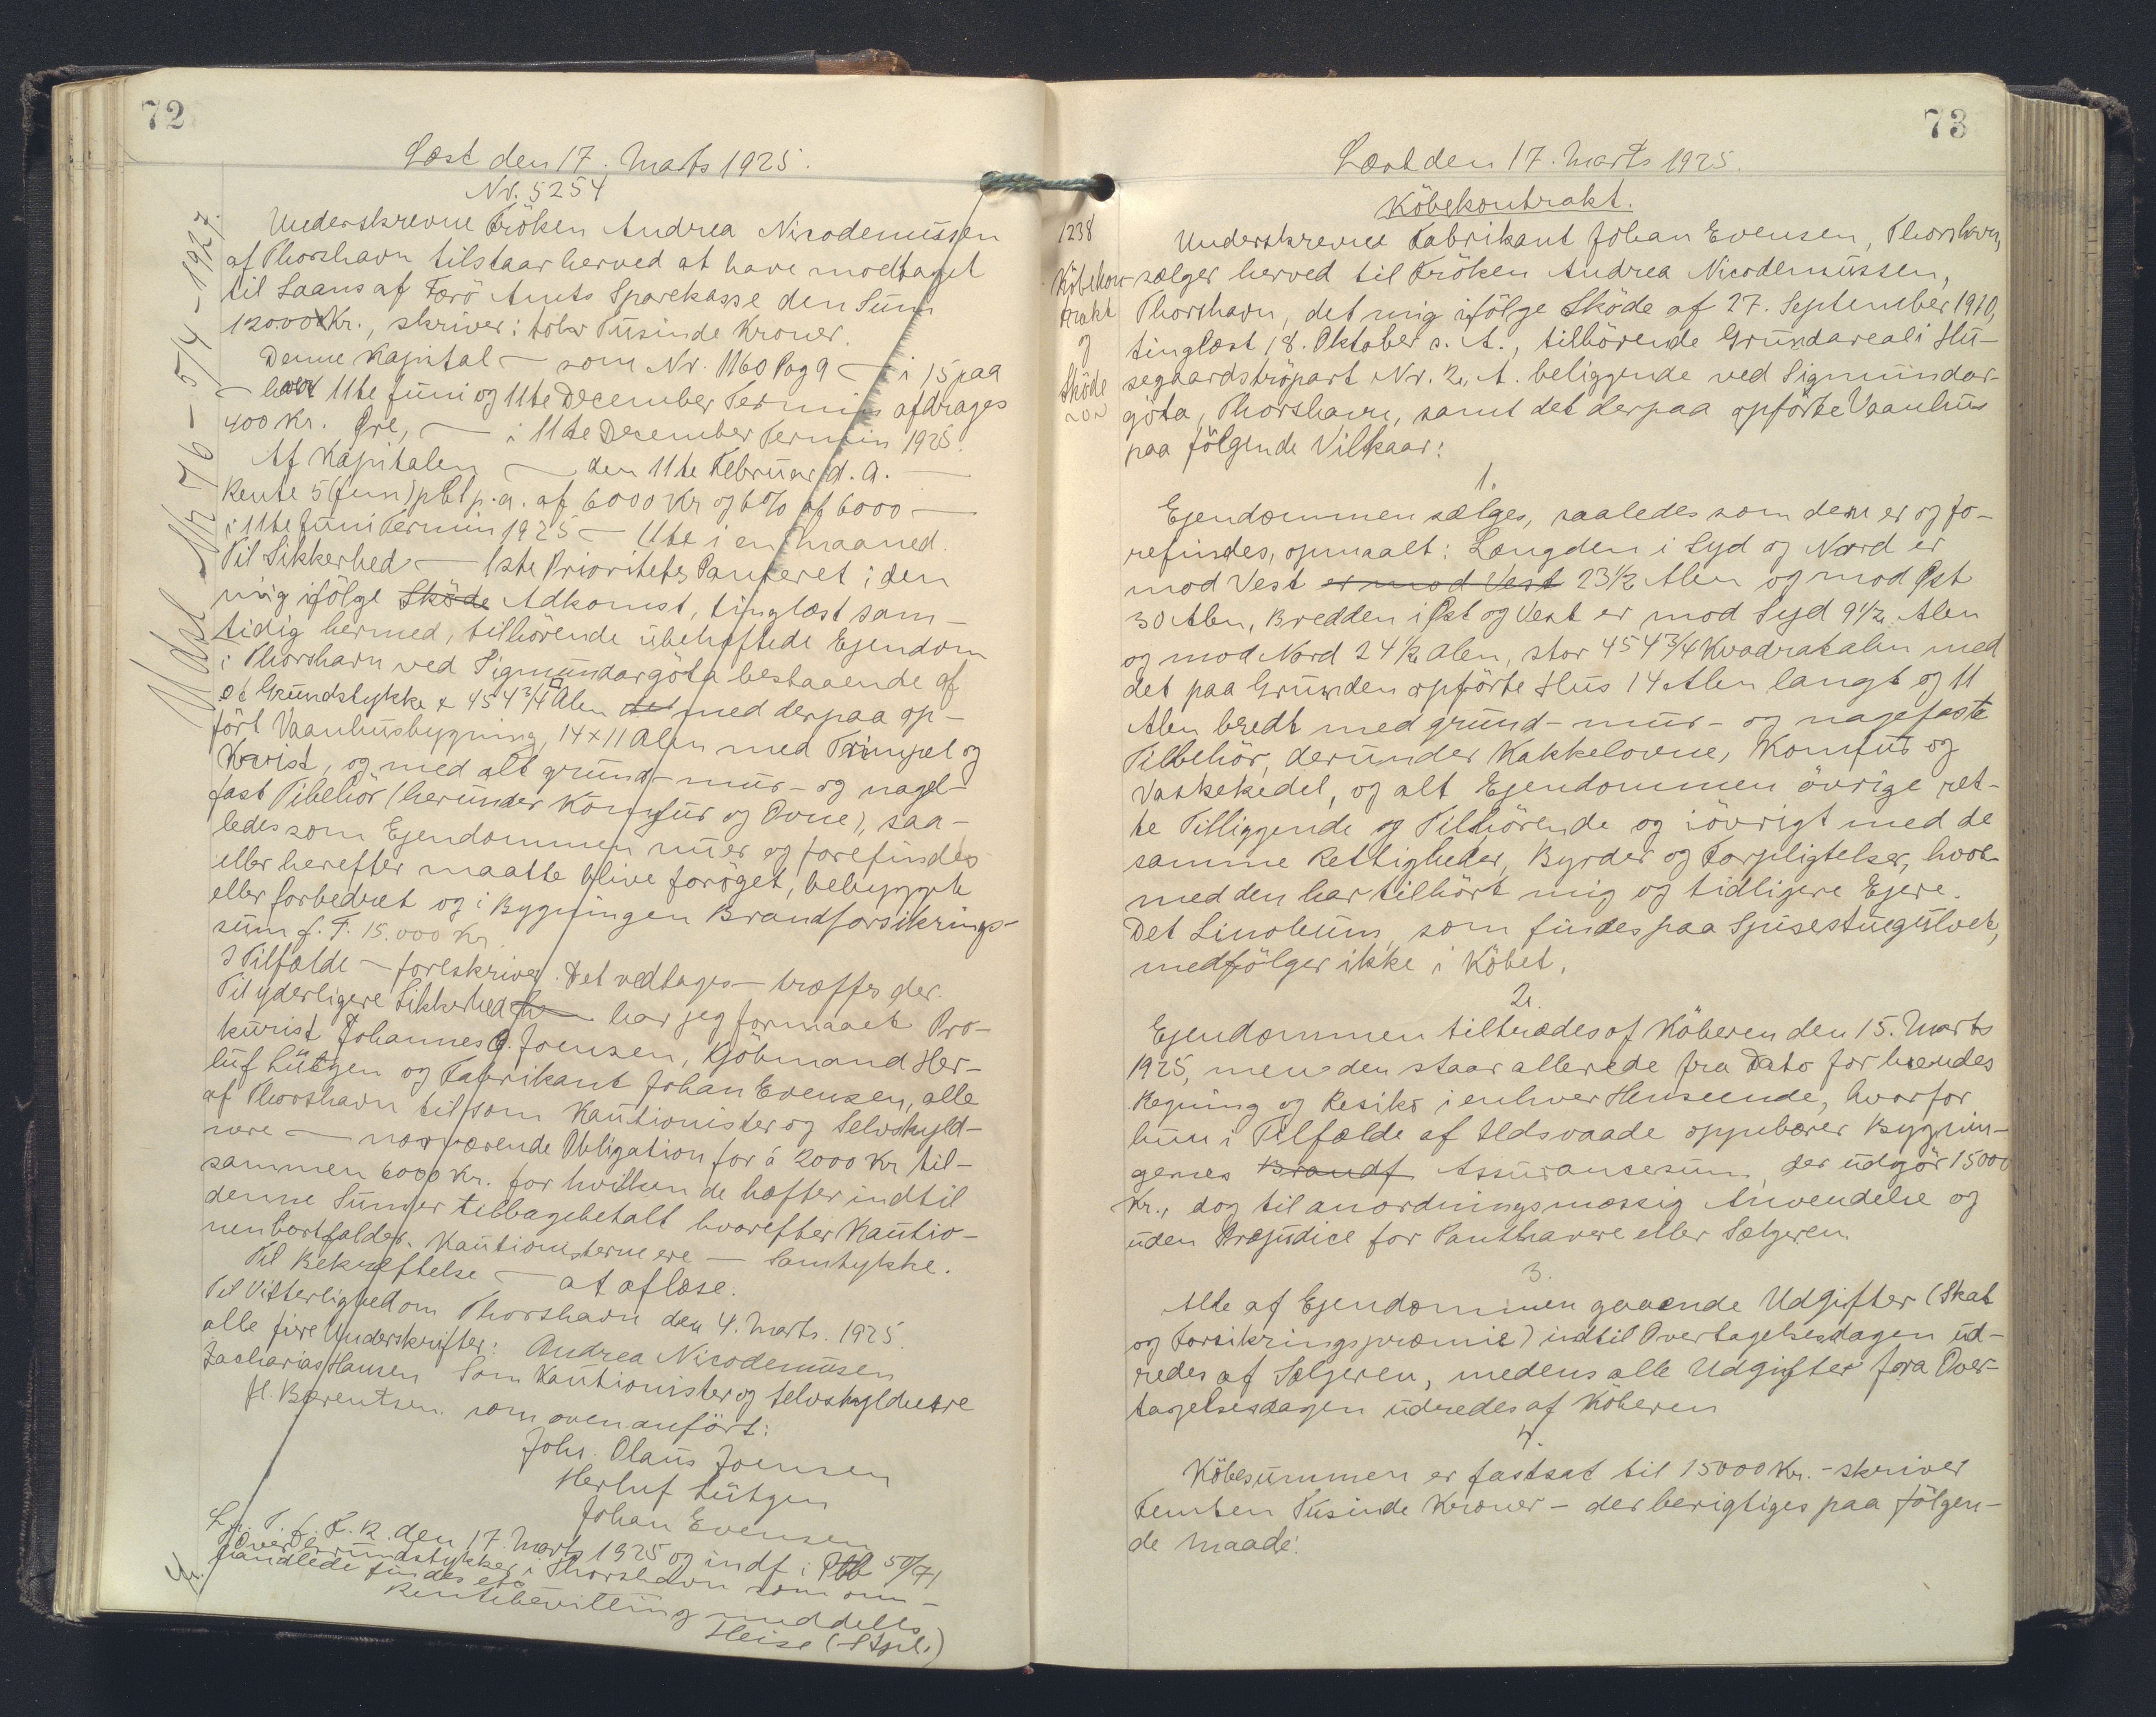 72
Læst den 17. Marts 1925.
Nr. 5254
Udsl. Nr 76 - 5/4 - 1927.
Underskrevne Fröken Andrea Nicodemussen
af Thorshavn tilstaar herved at have modtaget
til Laans af Færö Amts Sparekasse den Sum
12000 Kr., skriver: tolv Tusinde Kroner.
Denne Kapital — som Nr. 1160 Pag 9 — i 15 paa
— hver 11te Juni og 11te December Termin afdrages
400 Kr. Øre, — i 11te December Termin 1925.
Af Kapitalen — den 11te Februar d. A. —
Rente 5 (fem) pCt p. a. af 6000 Kr og 6% af 6000 —
i 11te Juni Termin 1925 — 11te i en Maaned.
Til Sikkerhed — 1ste Prioritets Panteret i den
mig ifölge Sköde Adkomst, tinglæst sam-
tidig hermed, tilhörende übehæftede Ejendom
i Thorshavn ved Sigmundargöta bestaaende af
et Grundstykke 454 3/4 □ Alen det med derpaa op-
fört Vaanhusbygning, 14 x 11 Alen med Trimpel og
Kvist, og med alt grund- mur- og nagel-
fast Tibehör (herunder Komfur og Ovne), saa-
ledes som Ejendommen nu er og forefindes
eller herefter maatte blive foröget, bebygget
eller forbedret og i Bygningen Brandforsikrings-
sum f. T. 15.000 Kr.
I Tilfælde — foreskriver. Det vedtages — træffes der.
Til yderligere Sikkerhed har jeg formaaet Pro-
kurist Johannes O. Joensen, Kjöbmand Her-
luf Lützen og Fabrikant Johan Evensen, alle
af Thorshavn til som Kautionister og Selvskyld-
nere — nærværende Obligation for á 2000 Kr til-
sammen 6000 Kr. for hvilken de hæfter indtil
denne Sum er tilbagebetalt hvorefter Kautio-
nen bortfalder. Kautionisterne ere — Samtykke.
Til Bekræftelse — at aflæse.
Thorshavn den 4. Marts. 1925.
Til Vitterlighed om
alle fire Underskrifter: Andrea Nicodemusen
Zacharias Hansen Som Kautionister og Selvskyldnere
H. Bærentsen. som ovenanfört:
Johs. Olaus Joensen
Herluf Lützen
Johan Evensen
L. i. T. f. F. R. den 17. Marts 1925 og indf. i Ptb 50/71
Over Grundstykker i Thorshavn som om-
handlede findes ej
Rentebevilling meddelt
Heise (Stpl.)
73
Læst den 17. Marts 1925.
Köbekontrakt.
1238
Köbekon-
trakt
og
Sköde
Underskrevne Fabrikant Johan Evensen, Thorshavn,
sælger herved til Fröken Andrea Nicodemussen,
Thorshavn, det mig ifölge Sköde af 27. September 1910,
tinglæst 18. Oktober s. A., tilhörende Grundareal i Hu-
segaardströpart Nr. 2, A. beliggende ved Sigmundar-
göta, Thorshavn, samt det derpaa opförte Vaanhus
paa fölgende Vilkaar:
1.
Ejendommen sælges, saaledes som den er og fo-
refindes, opmaalt: Længden i Syd og Nord er
mod Vest er mod Vest 23 1/2 Alen og mod Øst
30 Alen, Bredden i Øst og Vest er mod Syd 9 1/2 Alen
og mod Nord 24 1/2 Alen, stor 454 3/4 Kvadratalen med
det paa Grunden opförte Hus 14 Alen langt og 11
Alen bredt med grund- mur- og nagefaste
Tilbehör, derunder Kakkelovne, Komfur og
Vaskekedel, og alt Ejendommen övrige ret-
te Tilliggende og Tilhörende og iövrigt med de
samme Rettigheder, Byrder og Forpligtelser, hvor-
med den har tilhört mig og tidligere Ejere.
Det Linoleum, som findes paa Spisestuegulvet,
medfölger ikke i Köbet.
2.
Ejendommen tiltrædes af Köberen den 15. Marts
1925, men den staar allerede fra Dato for hendes
Regning og Resiko i enhver Henseende, hvorfor
hun i Tilfælde af Ildsvaade oppebærer Bygnin-
gernes Brandf Assurancesum, der udgör 15000
Kr., dog til anordningsmæssig Anvendelse og
uden Præjudice for Panthavere eller Sælgeren.
3.
Alle af Ejendommen gaaende Udgifter (Skat
og Forsikringspræmie) indtil Overtagelsesdagen ud-
redes af Sælgeren, medens alle Udgifter fra Over-
tagelsesdagen udredes af Köberen
4.
Köbesummen er fastsat til 15000 Kr. - skriver
Femten Tusinde Kroner - der berigtiges paa fölgen-
de Maade: